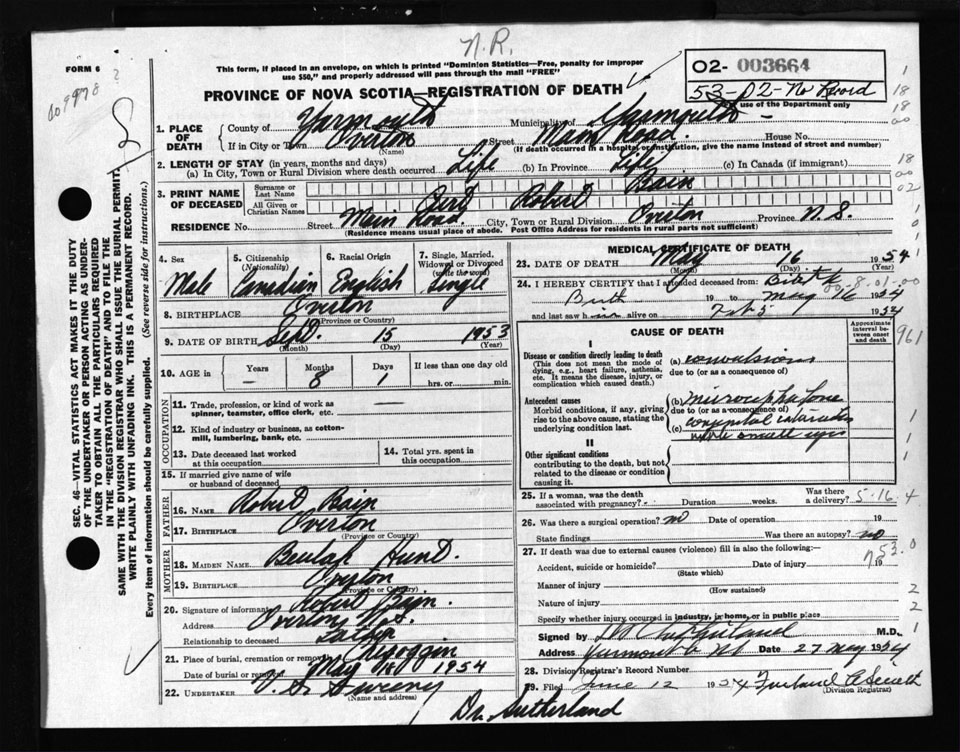 N.R.
FORM 6
This form, if placed in an envelope, on which is printed "Dominion Statistics—Free, penalty for improper
use $50," and properly addressed will pass through the mail "FREE"
02- 003664
53-02-No Record
use of the Department only
PROVINCE OF NOVA SCOTIA—REGISTRATION OF DEATH
1. PLACE OF DEATH
County of Yarmouth Municipality of Yarmouth
If in City or Town Overton Street Main Road. House No.
(Name) (If death occurred in a hospital or institution, give the name instead of street and number)
2. LENGTH OF STAY (in years, months and days)
(a) In City, Town or Rural Division where death occurred Life (b) In Province Life (c) In Canada (if immigrant)
3. PRINT NAME OF DECEASED
Surname or Last Name Bain
All Given or Christian Names Robert
RESIDENCE No. Street Main Road. City, Town or Rural Division Overton Province N.S.
(Residence means usual place of abode. Post Office Address for residents in rural parts not sufficient)
4. Sex Male
5. Citizenship (Nationality) Canadian
6. Racial Origin English
7. Single, Married, Widowed or Divorced (write the word) Single
8. BIRTHPLACE Overton
(Province or Country)
9. DATE OF BIRTH Sept. 15 1953
(Month) (Day) (Year)
10. AGE in Years — Months 8 Days 1 If less than one day hrs. or min.
OCCUPATION
11. Trade, profession, or kind of work as spinner, teamster, office clerk, etc. —
12. Kind of industry or business, as cotton-mill, lumbering, bank, etc.
13. Date deceased last worked at this occupation
14. Total yrs. spent in this occupation
15. If married give name of wife or husband of deceased
FATHER
16. NAME Robert Bain
17. BIRTHPLACE Overton
(Province or Country)
MOTHER
18. MAIDEN NAME Beulah Hurd.
19. BIRTHPLACE Overton
(Province or Country)
20. Signature of informant Robert Bain.
Address Overton N.S.
Relationship to deceased Father
21. Place of burial, cremation or removal Chegoggin
Date of burial or removal May 1954
22. UNDERTAKER V. S. Sweeny
(Name and address)
MEDICAL CERTIFICATE OF DEATH
23. DATE OF DEATH May 16 1954
(Month) (Day) (Year)
24. I HEREBY CERTIFY that I attended deceased from: Birth
Birth 19 to May 16 1954
and last saw him alive on Feb 5 1954
CAUSE OF DEATH
Approximate interval between onset and death
I
Disease or condition directly leading to death
(This does not mean the mode of dying, e.g., heart failure, asthenia, etc. It means the disease, injury, or complication which caused death.)
(a) convulsions
due to (or as a consequence of)
Antecedent causes
Morbid conditions, if any, giving rise to the above cause, stating the underlying condition last.
(b)
due to (or as a consequence of)
(c) small eyes
II
Other significant conditions
contributing to the death, but not related to the disease or condition causing it.
25. If a woman, was the death associated with pregnancy? Duration weeks. Was there a delivery?
5-16.4
26. Was there a surgical operation? no Date of operation 19
State findings Was there an autopsy? no
27. If death was due to external causes (violence) fill in also the following:—
Accident, suicide or homicide? Date of injury 19
(State which)
Manner of injury
(How sustained)
Nature of injury
Specify whether injury occurred in industry, in home, or in public place
Signed by M.D.
Address Yarmouth NS Date 27 May 1954
28. Division Registrar's Record Number
29. Filed June 12 1954
(Division Registrar)
Dr. Sutherland
SEC. 46—VITAL STATISTICS ACT MAKES IT THE DUTY
OF THE UNDERTAKER OR PERSON ACTING AS UNDER-
TAKER TO OBTAIN ALL THE PARTICULARS REQUIRED
IN THE "REGISTRATION OF DEATH" AND TO FILE THE
SAME WITH THE DIVISION REGISTRAR WHO SHALL ISSUE THE BURIAL PERMIT.
WRITE PLAINLY WITH UNFADING INK. THIS IS A PERMANENT RECORD.
Every item of information should be carefully supplied. (See reverse side for instructions.)
961